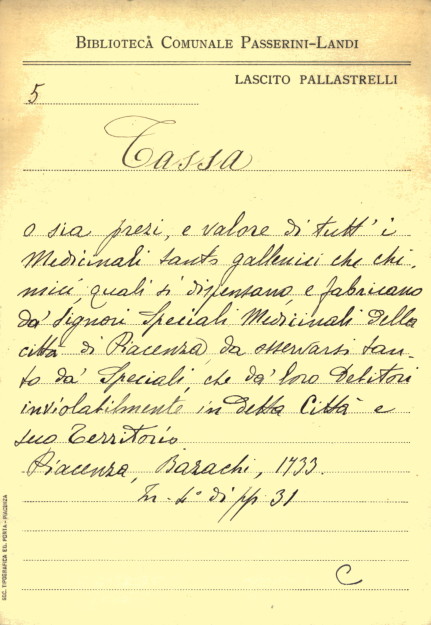 BIBLIOTECA COMUNALE PASSERINI-LANDI
LASCITO PALLASTRELLI
5
Tassa
o sia prezi, e valore di tutt' i
Medicinali tanto gallenici che chi-
mici, quali si dispensano, e fabricano
da' Signori Speciali Medicinali della
città di Piacenza, da osservarsi tan-
to da' Speciali, che da' loro Debitori
inviolabilmente in detta Città e
suo Territorio
Piacenza, Bazachi, 1733.
In-4° di pp 31
C
SOC. TIPOGRAFICA ED. PORTA - PIACENZA